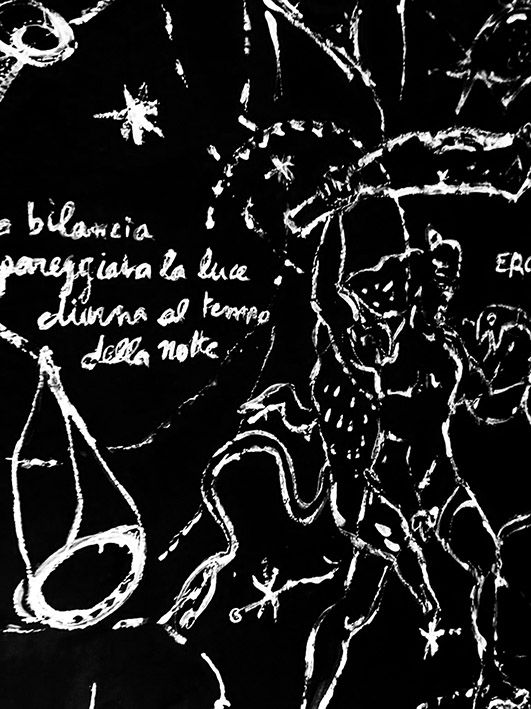 a bilancia
pareggiava la luce
diurna al tempo
della notte
ERC